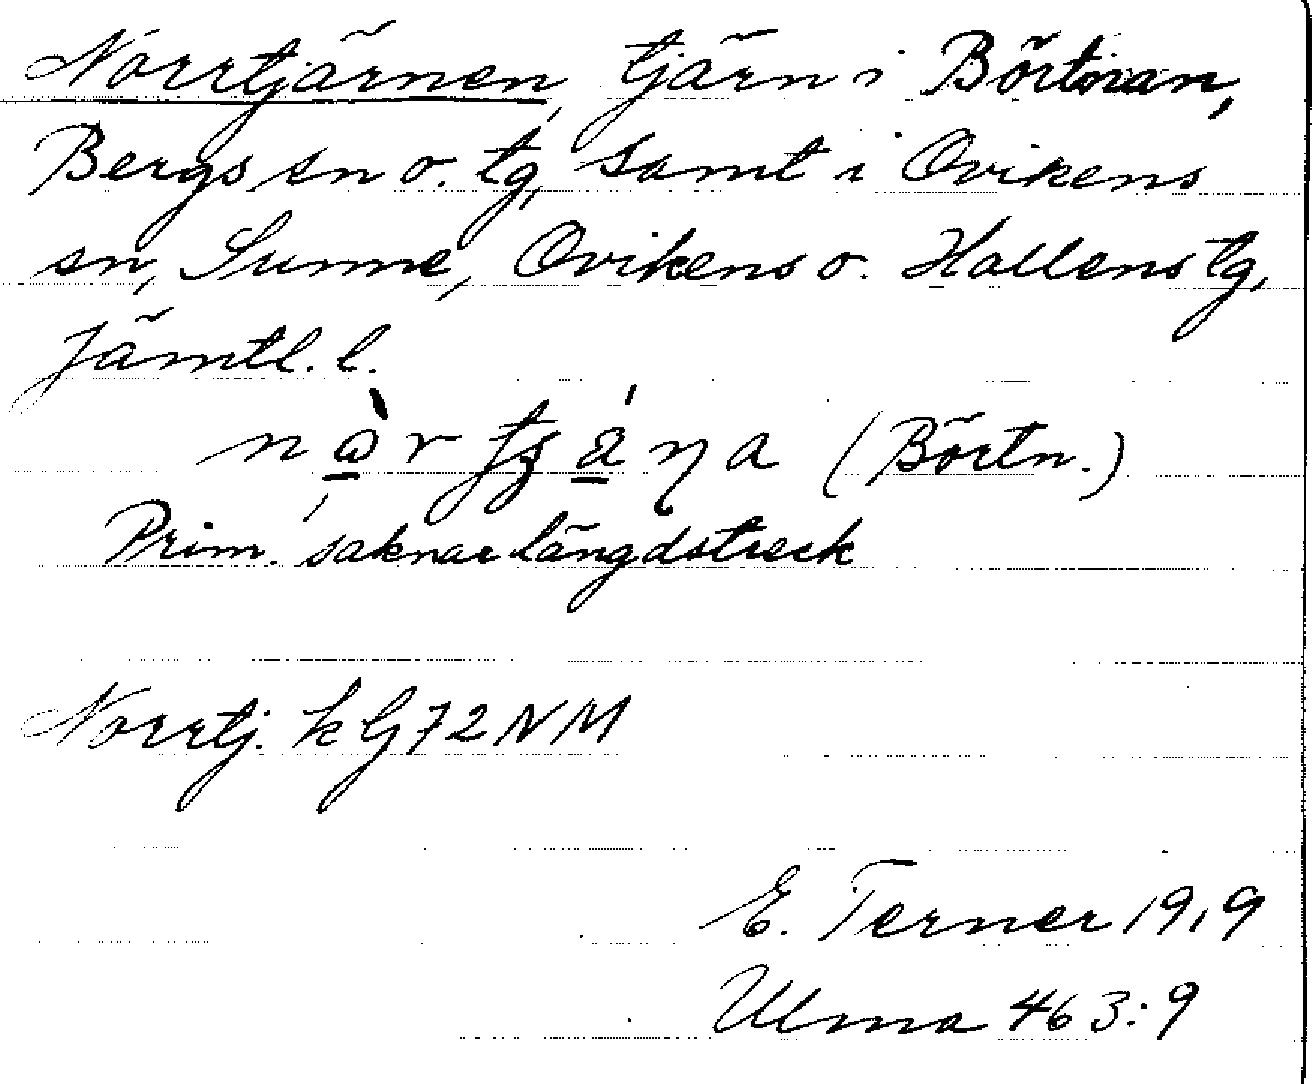 Norrtjärnen, tjärn i Börtnan,
Bergs sn o. tg, samt i Ovikens
sn, Sunne, Ovikens o. Hallens tg,
Jämtl. l.
(Börtn.)
Prim. saknar längdstreck
Norrtj. k G 72 NM
E. Terner 1919
Ulma 463:9